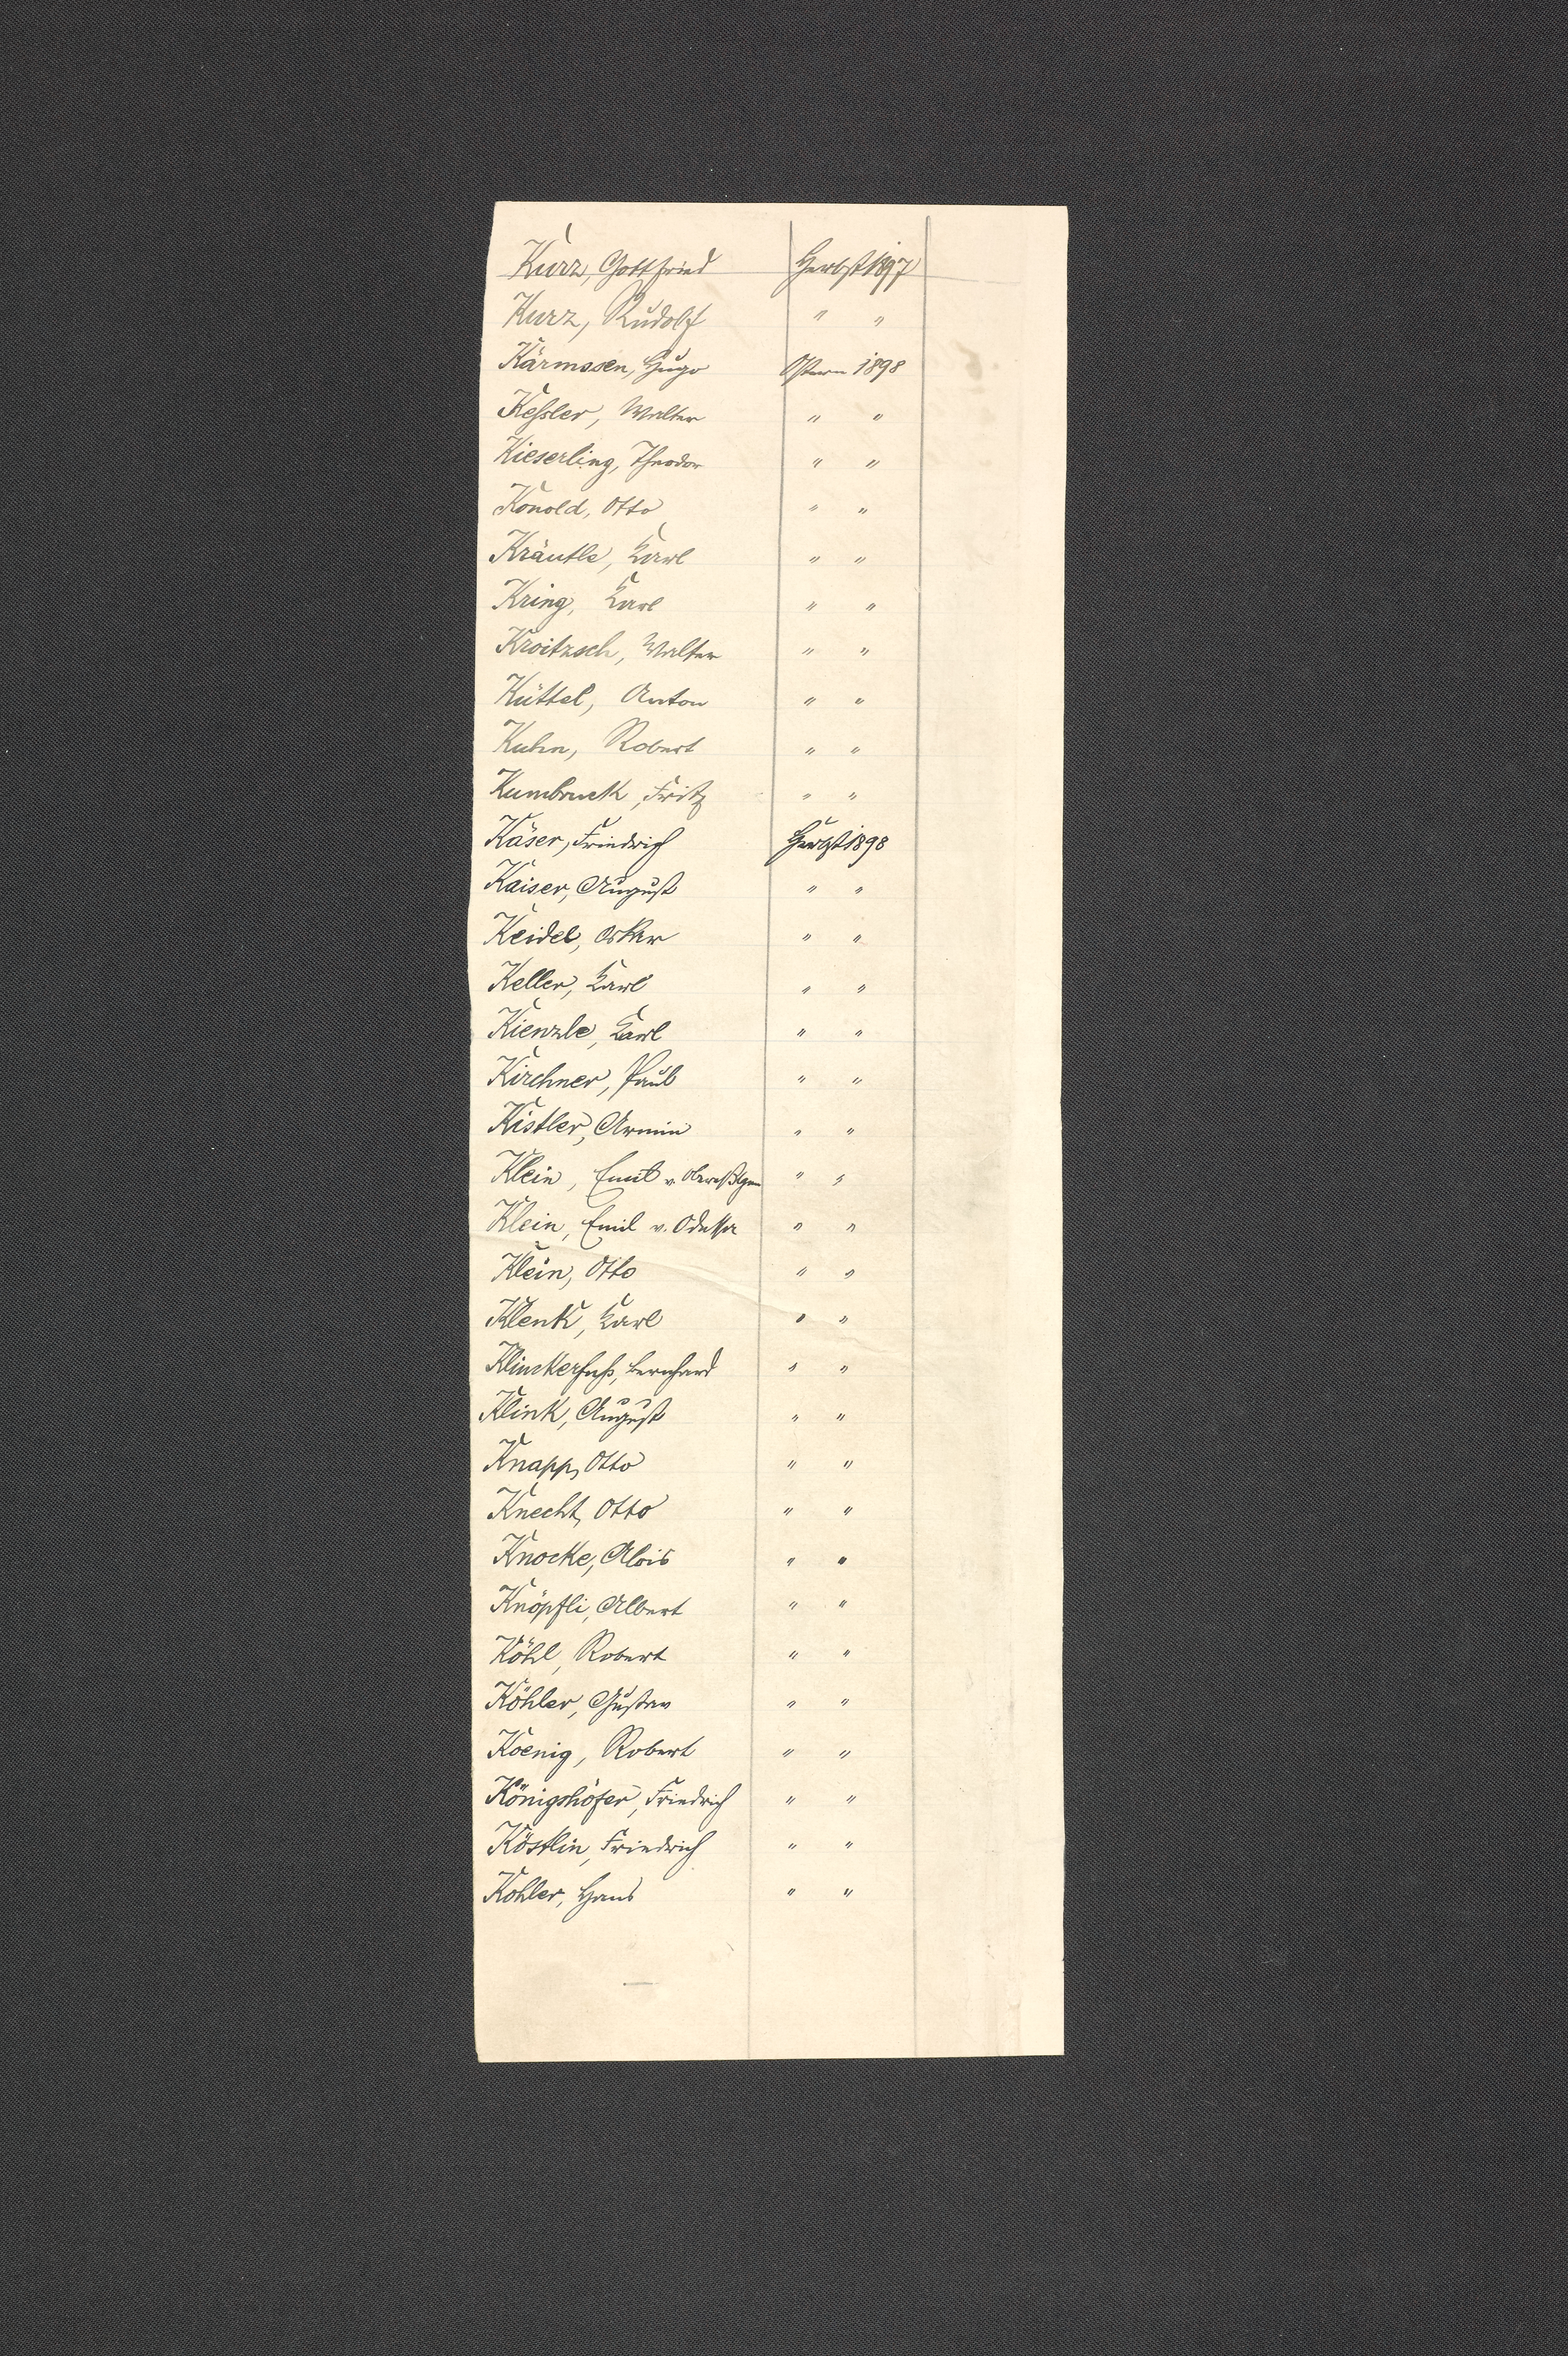 Kurz, Gottfried Herbst 1897
Kurz, Rudolf " "
Kärmssen, Hugo Ostern 1898
Keßler, Walter " "
Kieserling, Theodor " "
Konold, Otto " "
Kräutle, Karl " "
Kring, Karl " "
Kroitzsch, Walter " "
Küttel, Anton " "
Kuhn, Robert " "
Kumbruck, Fritz " "
Käser, Friedrich Herbst 1898
Kaiser, August " "
Keidel, Oskar " "
Keller, Karl " "
Kienzle, Karl " "
Kirchner, Paul " "
Kistler, Armin " "
Klein, Emil v. " "
Klein, Emil v. Odessa " "
Klein, Otto " "
Klenk, Karl " "
Klinckerfuß, Bernhard " "
Klink, August " "
Knapp, Otto " "
Knecht, Otto " "
Knocke, Alois " "
Knöpfli, Albert " "
Köhl, Robert " "
Köhler, Gustav " "
Koenig, Robert " "
Königshöfer, Friedrich " "
Köstlin, Friedrich " "
Kohler, Hans " "